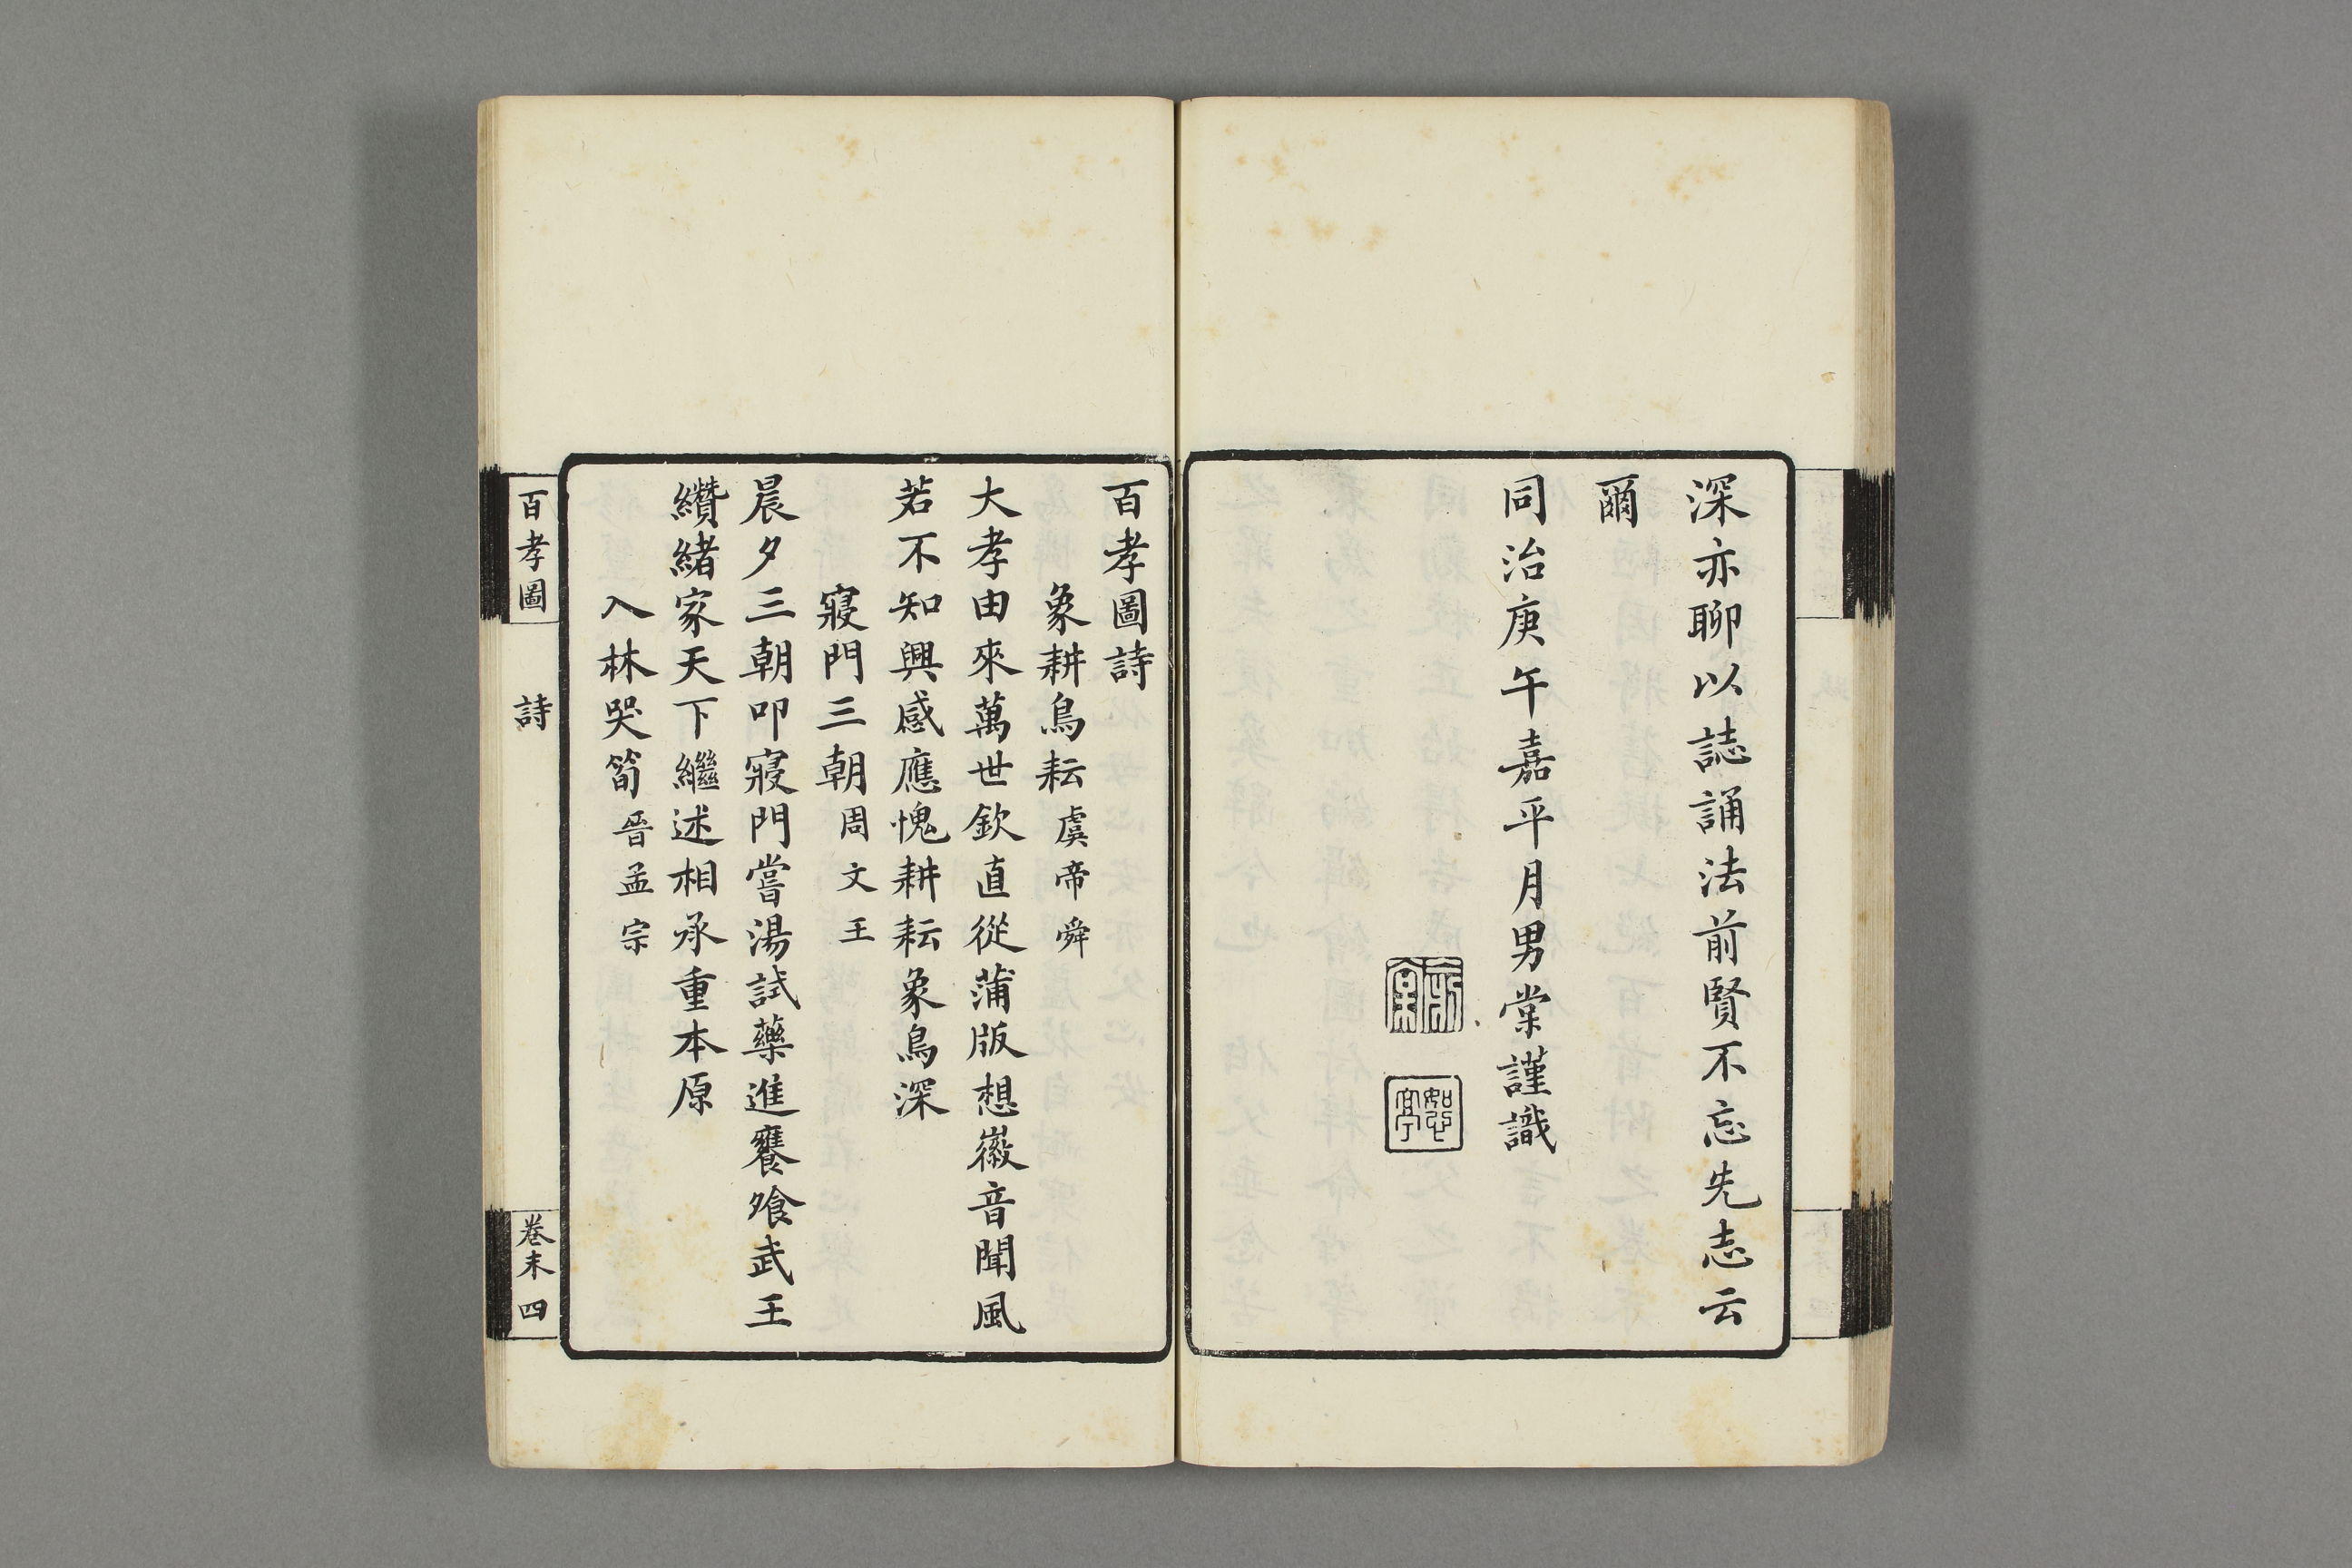 深亦聊以誌誦法前賢不忘先志云
爾
同治庚午嘉平月男棠謹識
如心
亭
百孝圖詩
象耕鳥耘虞帝舜
大孝由來萬世欽直從蒲版想徽音聞風
若不知興感應愧耕耘象鳥深
寢門三朝周文王
晨夕三朝叩寢門嘗湯試藥進饔飧武王
纘緒家天下繼述相承重本原
入林哭筍晉孟宗
百孝圖
詩
卷末
四